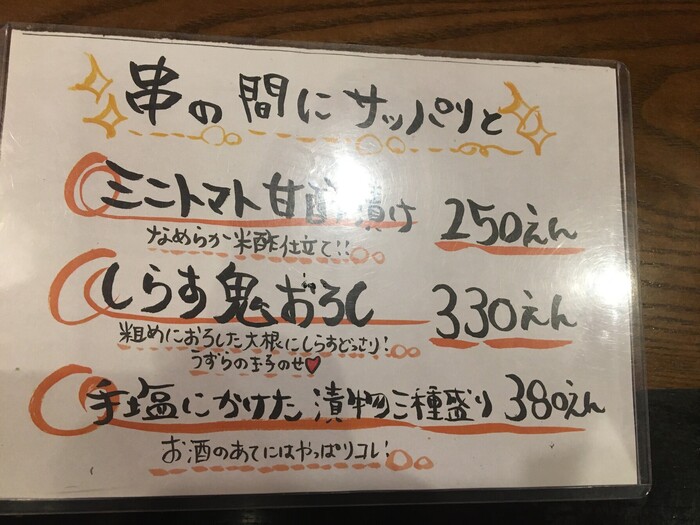 串の間にサッパリと
ミニトマト甘酢漬け 250えん
なめらか米酢仕立て!!
しらす鬼おろし 330えん
粗めにおろした大根にしらすどっさり!
うずらの玉子のせ♥
手塩にかけた漬物三種盛り 380えん
お酒のあてにはやっぱりコレ!